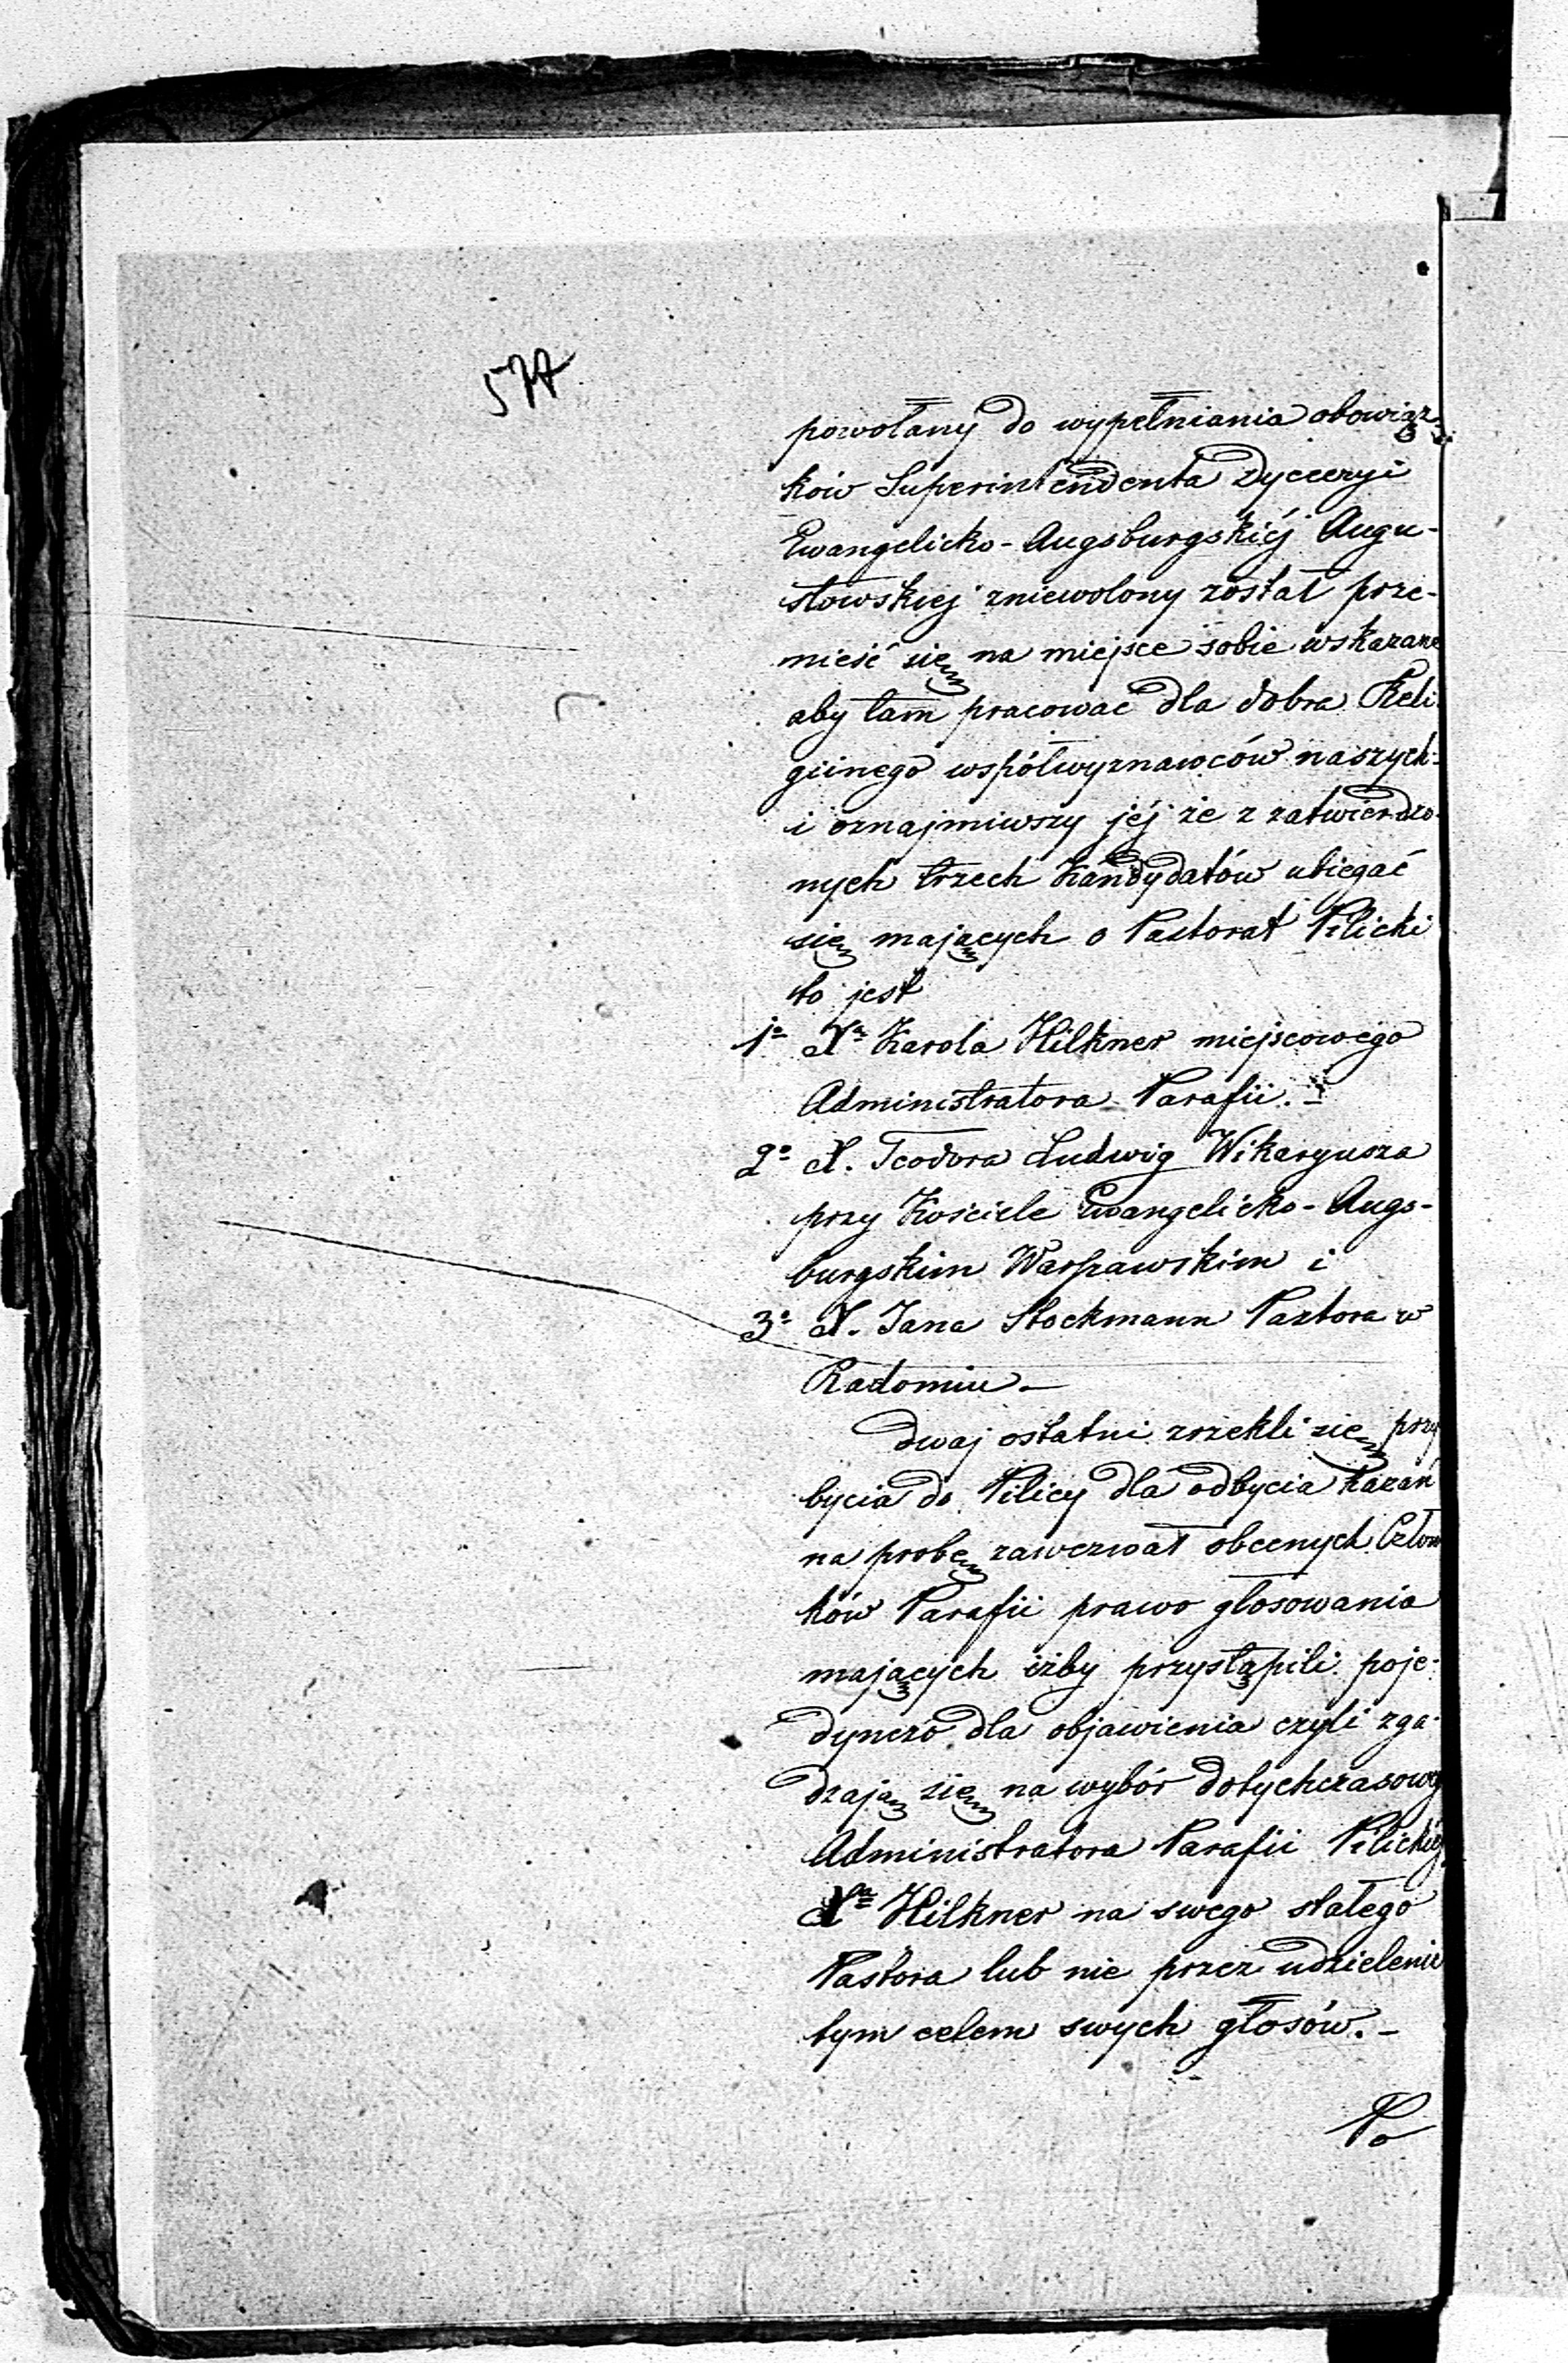 577
powołany do wypełniania obowiąz-
ków Superintendenta Dyecezyi
Ewangelicko-Augsburgskiéj Augu-
stowskiej zniewolony został prze-
nieść się na miejsce sobie wskazane
aby tam pracować dla dobra Reli-
giinego współwyznawców naszych-
i oznajmiwszy jéj że z zatwierdzo-
nych trzech Kandydatów ubiegać
się mających o Pastorat Pilicki
to jest
1o Xa Karola Hilkner miejscowego
Administratora Parafii. -
2o X. Teodora Ludwig Wikaryusza
przy Kościele Ewangelicko-Augs-
burgskim Warszawskim i
3o X. Jana Stockmann Pastora w
Radomiu —
Dwaj ostatni zrzekli się przy
bycia do Pilicy dla odbycia Kazań
na probę zawezwał obecnych Człon
ków Parafii prawo głosowania
mających iżby przystąpili poje-
dynczo dla objawienia czyli zga-
dzają się na wybór dotychczasowego
Administratora Parafii Pilickiéj
Xa Hilkner na swego stałego
Pastora lub nie przez udzielenie
tym celem swych głosów. -
Po